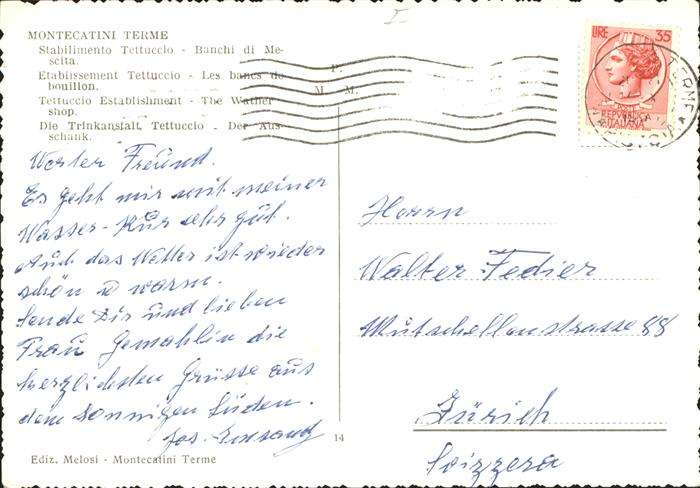 MONTECATINI TERME
Stabilimento Tettuccio - Banchi di Me-
scita.
Etablissement Tettuccio - Les bancs de
bouillon.
Tettuccio Establishment - The Wather
shop.
Die Trinkanstalt Tettuccio - Der Aus-
schank.
P.
M. M.
LIRE 35
REPVBBLICA
ITALIANA
Werter Freund.
Es geht mir mit meiner
Wasser-Kur sehr gut.
Auch das Wetter ist wieder
schön u warm.
Sende Dir und lieben
Frau Gemahlin die
herzlichsten Grüsse aus
dem sonnigen Süden.
Jos.
Herrn
Walter Fedier
Mutschellenstrasse 88
Zürich
Svizzera
14
Ediz. Melosi - Montecatini Terme